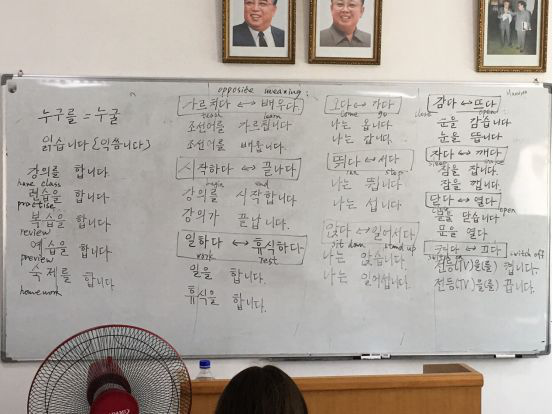 누구를 = 누굴
읽습니다 [익씀니다]
강의를 합니다
have class
련습을 합니다
practise
복습을 합니다
review
예습을 합니다
preview
숙제를 합니다
homework
opposite meaning:
가르치다 ↔ 배우다
teach learn
조선어를 가르칩니다
조선어를 배웁니다.
시작하다 ↔ 끝나다
begin end
강의를 시작합니다
강의가 끝납니다.
일하다 ↔ 휴식하다
work rest
일을 합니다.
휴식을 합니다.
오다 ↔ 가다
come go
나는 옵니다
나는 갑니다.
뛰다 ↔ 서다
run stop
나는 뜁니다
나는 섭니다
앉다 ↔ 일어서다
sit down stand up
나는 앉습니다.
나는 일어섭니다.
감다 ↔ 뜨다
close open
눈을 감습니다
눈을 뜹니다
자다 ↔ 깨다
잠을 잡니다.
잠을 깹니다
닫다 ↔ 열다
open
문을 닫습니다
문을 열다
켜다 ↔ 끄다
switch off
전등(TV)을(를) 켭니다.
전등(TV)을(를) 끕니다.